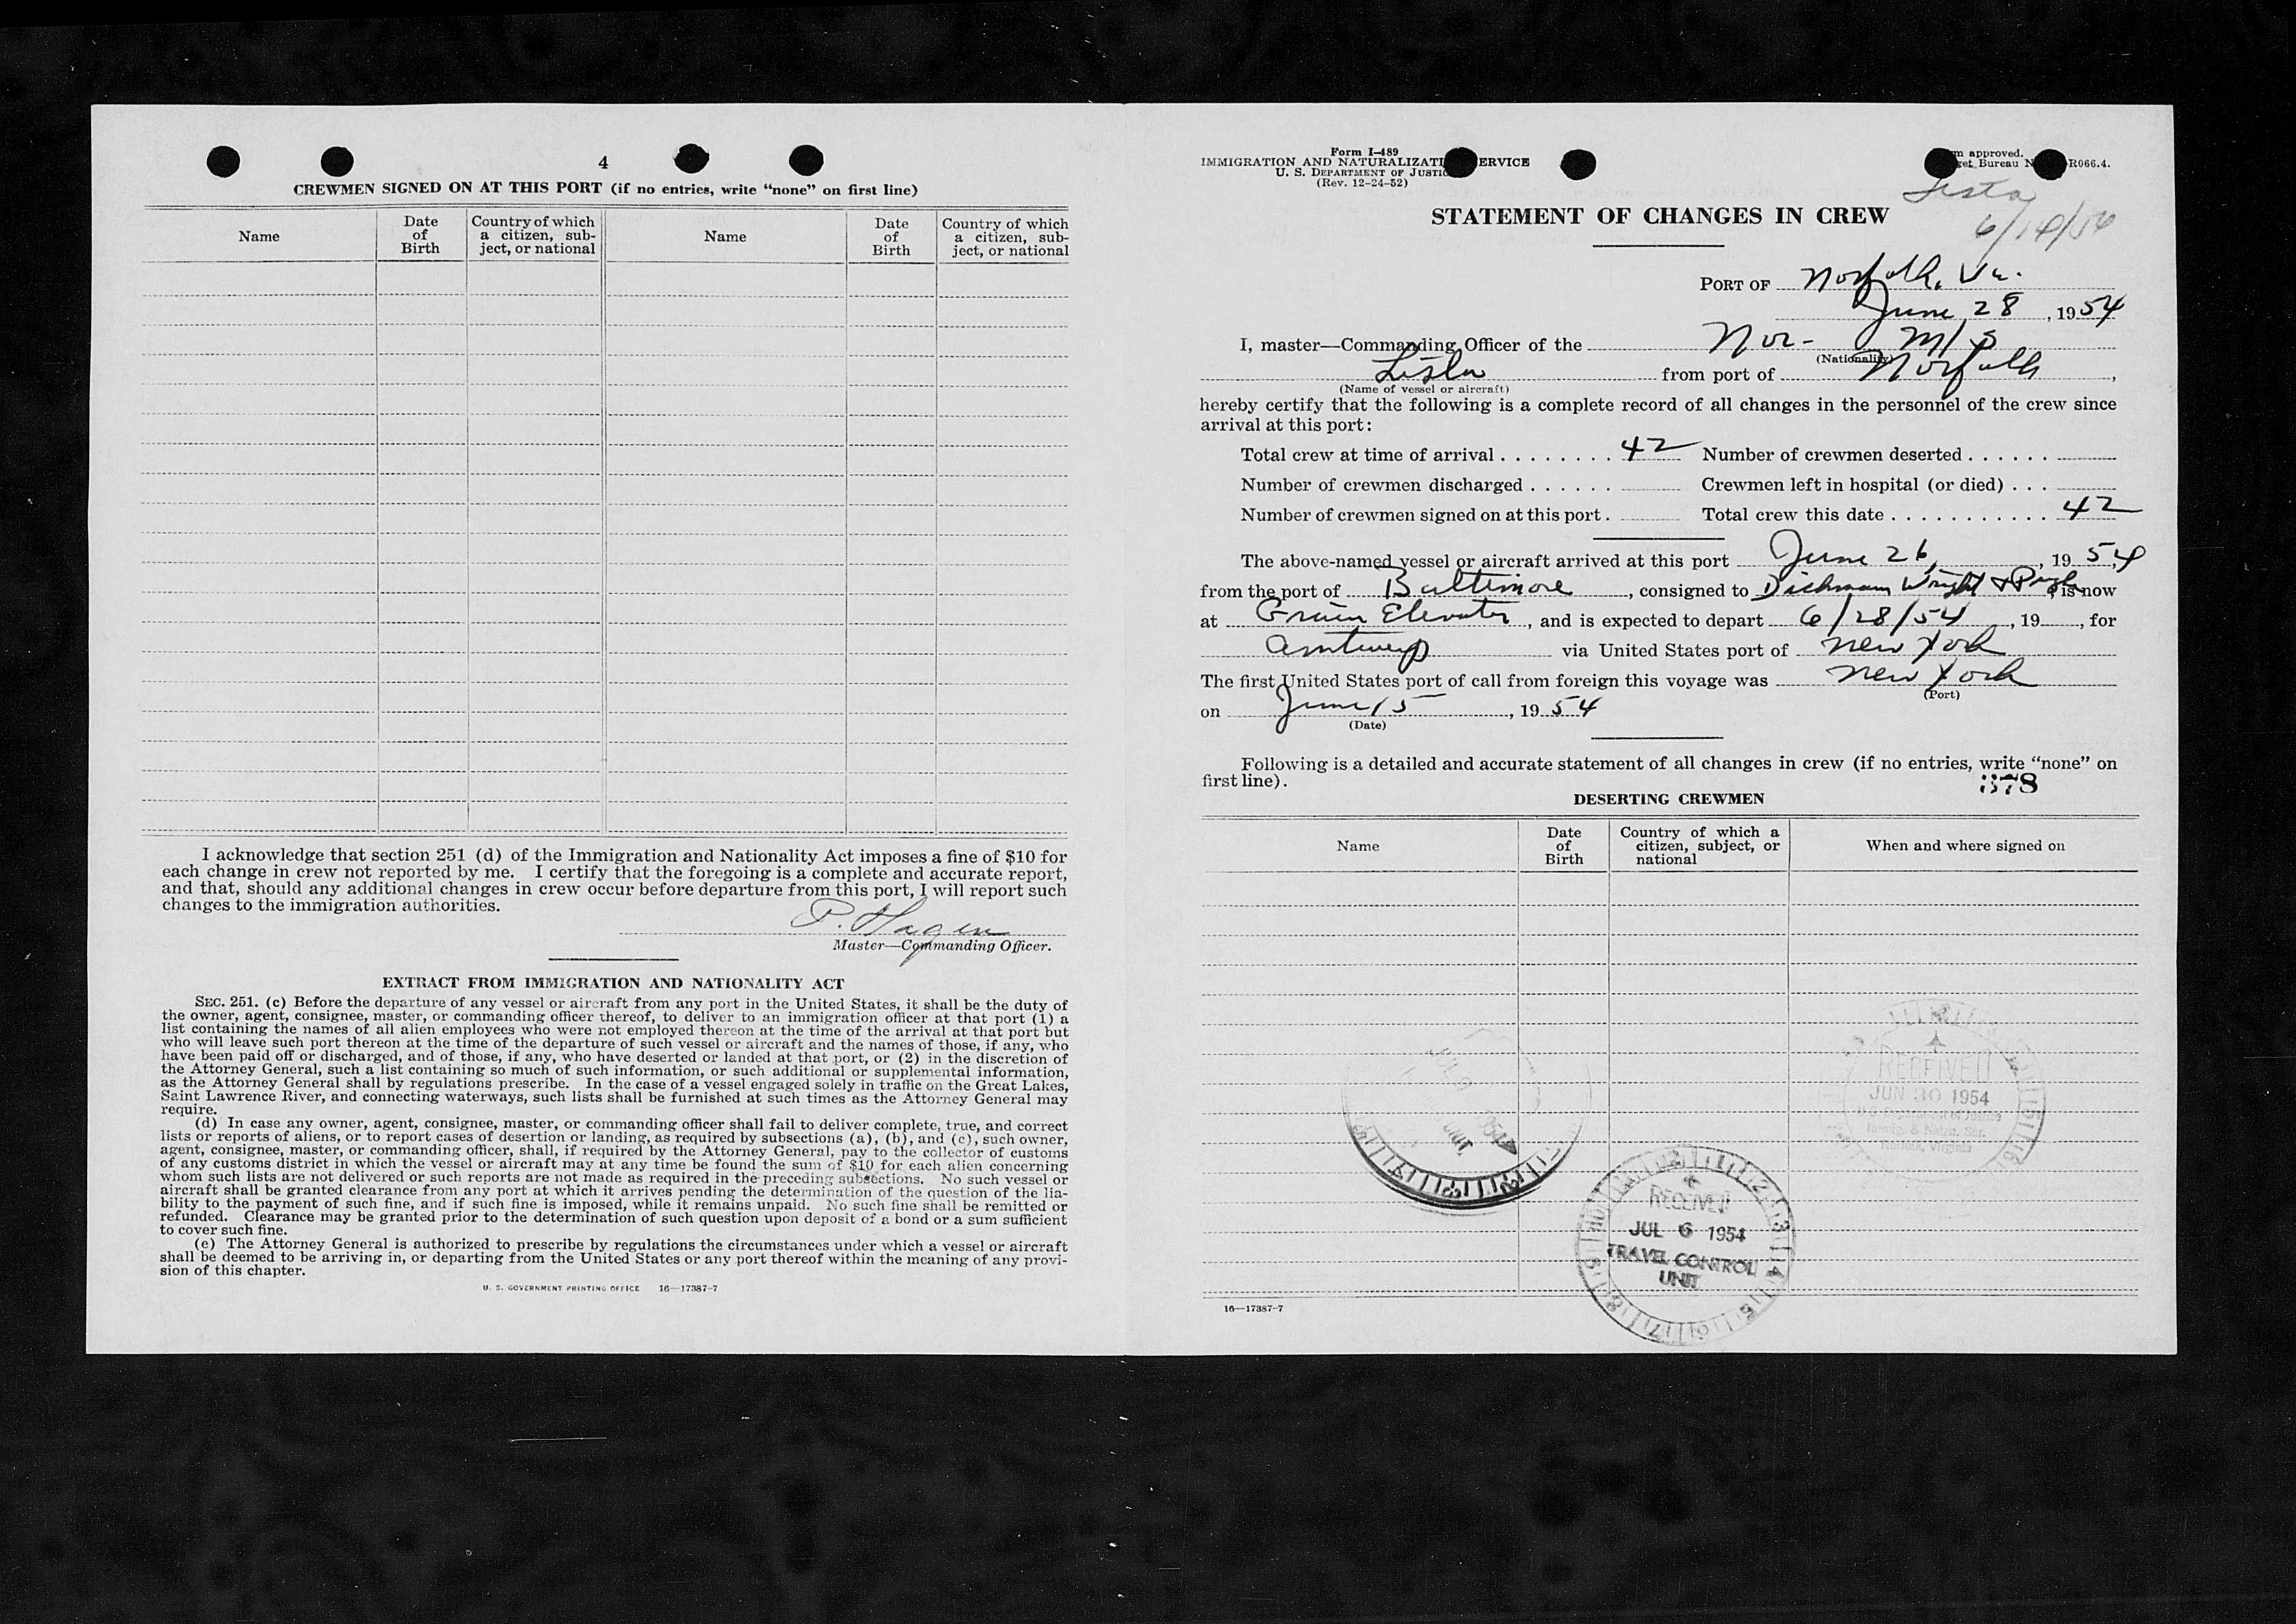 4
CREWMEN SIGNED ON AT THIS PORT (if no entries, write “none” on first line)
Name
Date of Birth
Country of which a citizen, subject, or national
Name
Date of Birth
Country of which a citizen, subject, or national
I acknowledge that section 251 (d) of the Immigration and Nationality Act imposes a fine of $10 for
each change in crew not reported by me. I certify that the foregoing is a complete and accurate report,
and that, should any additional changes in crew occur before departure from this port, I will report such
changes to the immigration authorities.
P. Hagen
Master—Commanding Officer.
EXTRACT FROM IMMIGRATION AND NATIONALITY ACT
SEC. 251. (c) Before the departure of any vessel or aircraft from any port in the United States, it shall be the duty of
the owner, agent, consignee, master, or commanding officer thereof, to deliver to an immigration officer at that port (1) a
list containing the names of all alien employees who were not employed thereon at the time of the arrival at that port but
who will leave such port thereon at the time of the departure of such vessel or aircraft and the names of those, if any, who
have been paid off or discharged, and of those, if any, who have deserted or landed at that port, or (2) in the discretion of
the Attorney General, such a list containing so much of such information, or such additional or supplemental information,
as the Attorney General shall by regulations prescribe. In the case of a vessel engaged solely in traffic on the Great Lakes,
Saint Lawrence River, and connecting waterways, such lists shall be furnished at such times as the Attorney General may
require.
(d) In case any owner, agent, consignee, master, or commanding officer shall fail to deliver complete, true, and correct
lists or reports of aliens, or to report cases of desertion or landing, as required by subsections (a), (b), and (c), such owner,
agent, consignee, master, or commanding officer, shall, if required by the Attorney General, pay to the collector of customs
of any customs district in which the vessel or aircraft may at any time be found the sum of $10 for each alien concerning
whom such lists are not delivered or such reports are not made as required in the preceding subsections. No such vessel or
aircraft shall be granted clearance from any port at which it arrives pending the determination of the question of the lia-
bility to the payment of such fine, and if such fine is imposed, while it remains unpaid. No such fine shall be remitted or
refunded. Clearance may be granted prior to the determination of such question upon deposit of a bond or a sum sufficient
to cover such fine.
(e) The Attorney General is authorized to prescribe by regulations the circumstances under which a vessel or aircraft
shall be deemed to be arriving in, or departing from the United States or any port thereof within the meaning of any provi-
sion of this chapter.
U. S. GOVERNMENT PRINTING OFFICE 16—17387-7
Form I-489
IMMIGRATION AND NATURALIZATI ERVICE
U. S. DEPARTMENT OF JUSTIC
(Rev. 12-24-52)
approved.
get Bureau N R066.4.
Lista
STATEMENT OF CHANGES IN CREW
PORT OF Norfolk, Va.
June 28, 1954
I, master—Commanding Officer of the Nor- M/S
(Nationality)
Lista from port of Norfolk,
(Name of vessel or aircraft)
hereby certify that the following is a complete record of all changes in the personnel of the crew since
arrival at this port:
Total crew at time of arrival . . . . . . . . 42 Number of crewmen deserted . . . . . .
Number of crewmen discharged . . . . . . Crewmen left in hospital (or died) . . .
Number of crewmen signed on at this port . Total crew this date . . . . . . . . . . . 42
The above-named vessel or aircraft arrived at this port June 26, , 1954
from the port of Baltimore, consigned to Dichmann Wright & Pugh, is now
at Grain Elevator, and is expected to depart 6/28/54, 19 , for
Antwerp via United States port of New York
The first United States port of call from foreign this voyage was New York
(Port)
on June 15, 1954
(Date)
Following is a detailed and accurate statement of all changes in crew (if no entries, write “none” on
first line).
378
DESERTING CREWMEN
Name
Date of Birth
Country of which a citizen, subject, or national
When and where signed on
RECEIVED
JUN 30 1954
U.S. Department of Justice
Immig. & Natzn. Ser.
Norfolk, Virginia
JUL 9 1954
UNIT
RECEIVED
JUL 6 1954
TRAVEL CONTROL
UNIT
16—17387-7